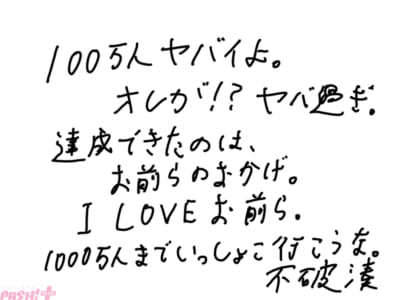 100万人ヤバイよ。
オレが!? ヤバ過ぎ。
達成できたのは、
お前らのおかげ。
I LOVE お前ら。
1000万人までいっしょに行こうな。
不破湊
PASH!+